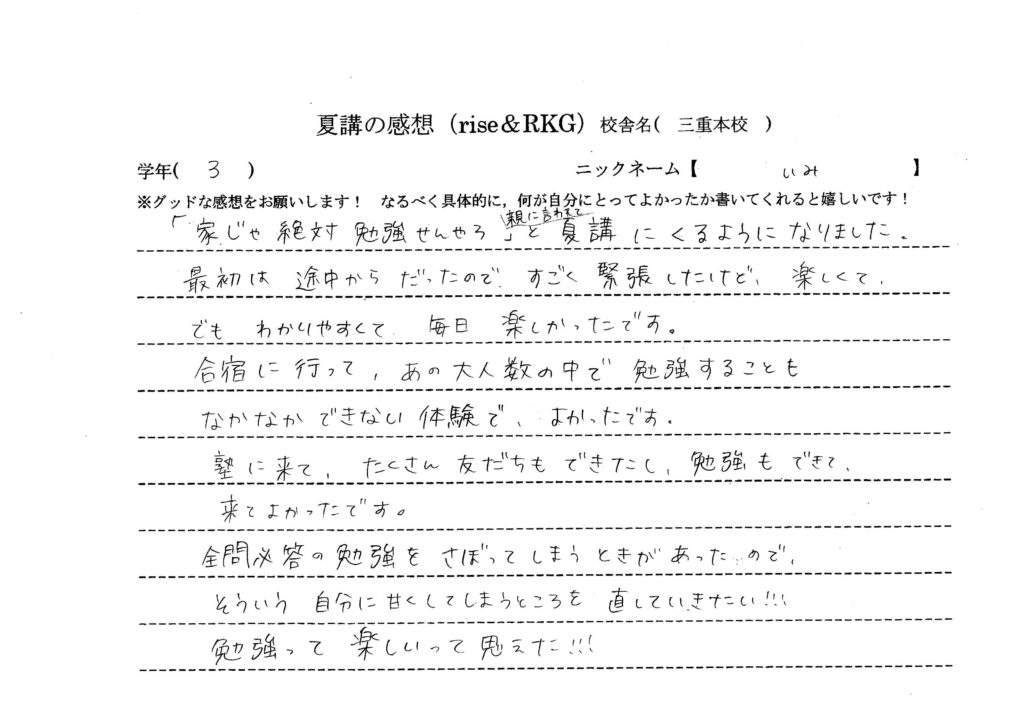 夏講の感想（rise＆RKG）校舎名(　三重本校　)
学年(　3　)　ニックネーム【　いみ　】
※グッドな感想をお願いします！　なるべく具体的に，何が自分にとってよかったか書いてくれると嬉しいです！
「家じゃ絶対勉強せんやろ」と親に言われて夏講にくるようになりました。
最初は途中からだったので、すごく緊張したけど、楽しくて、
でもわかりやすくて、毎日楽しかったです。
合宿に行って、あの大人数の中で勉強することも
なかなかできない体験で、よかったです。
塾に来て、たくさん友だちもできたし、勉強もできて、
来てよかったです。
全問必答の勉強をさぼってしまうときがあったので、
そういう自分に甘くしてしまうところを直していきたい!!!
勉強って楽しいって思えた!!!